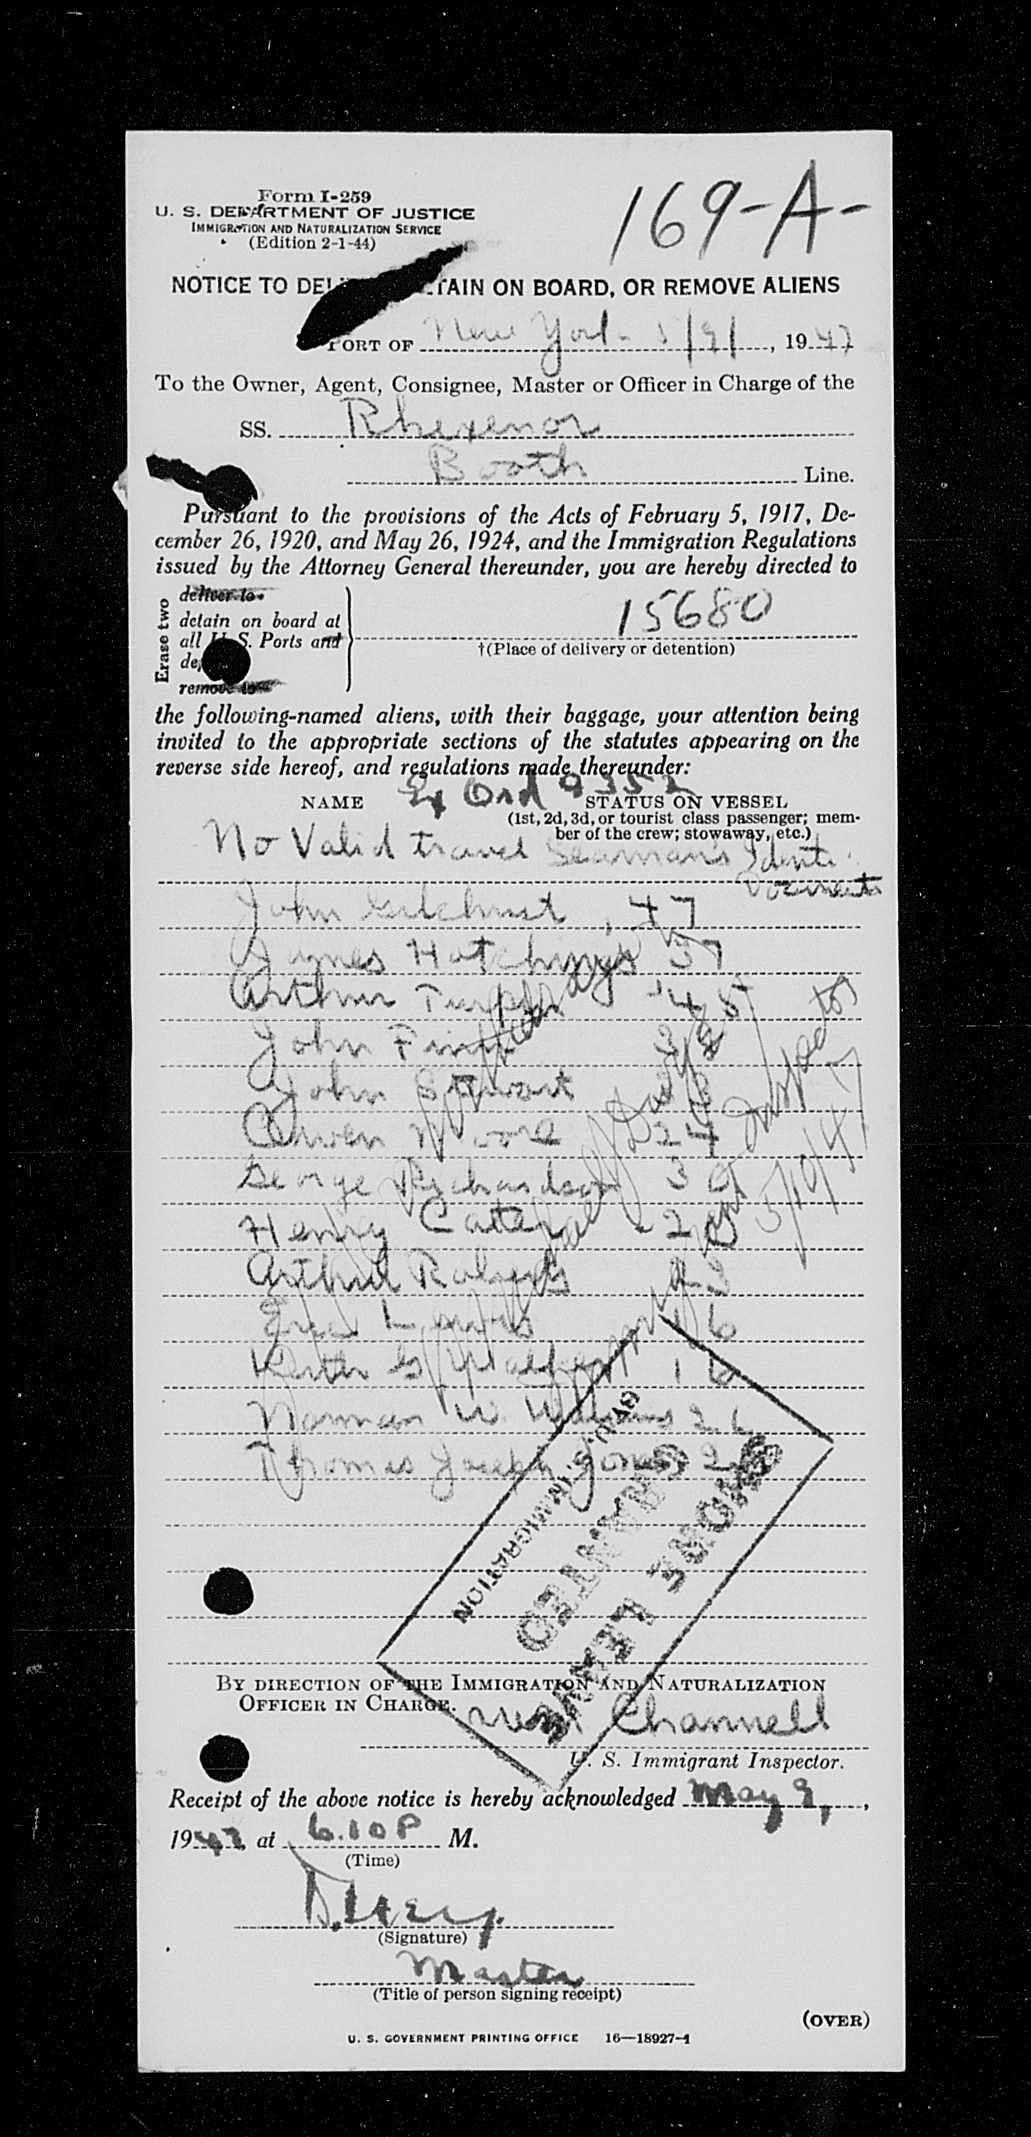 Form I-259
169-A-
U. S. DEPARTMENT OF JUSTICE
IMMIGRATION AND NATURALIZATION SERVICE
(Edition 2-1-44)
NOTICE TO DEL TAIN ON BOARD, OR REMOVE ALIENS
PORT OF New York 5/9/, 1947
To the Owner, Agent, Consignee, Master or Officer in Charge of the
SS. Rhexenor
Booth Line.
Pursuant to the provisions of the Acts of February 5, 1917, De-
cember 26, 1920, and May 26, 1924, and the Immigration Regulations
issued by the Attorney General thereunder, you are hereby directed to
Erase two
deliver to
detain on board at
all U. S. Ports and
de
remove to
15680
†(Place of delivery or detention)
the following-named aliens, with their baggage, your attention being
invited to the appropriate sections of the statutes appearing on the
reverse side hereof, and regulations made thereunder:
Ex Ord 9352
NAME STATUS ON VESSEL
(1st, 2d, 3d, or tourist class passenger; mem-
ber of the crew; stowaway, etc.)
No Valid travel Seaman's Identi.
Documents
John Gilchrist, 47
James Hutchings 37
Arthur 45
John
John Stewart
Owen Moore 24
George Richardson
Henry
Arthur Roberts
Eric 16
Keith G 16
Norman W. Williams 26
Thomas Joseph Jones
Inspector
5/10/47
SHORE LEAVE
GRANTED
BY U. S. IMMIGRATION
BY DIRECTION OF THE IMMIGRATION AND NATURALIZATION
OFFICER IN CHARGE.
Channell
U. S. Immigrant Inspector.
Receipt of the above notice is hereby acknowledged May 9,
1947, at 6.10 P M.
(Time)
(Signature)
Master
(Title of person signing receipt)
(OVER)
U. S. GOVERNMENT PRINTING OFFICE 16—18927-1